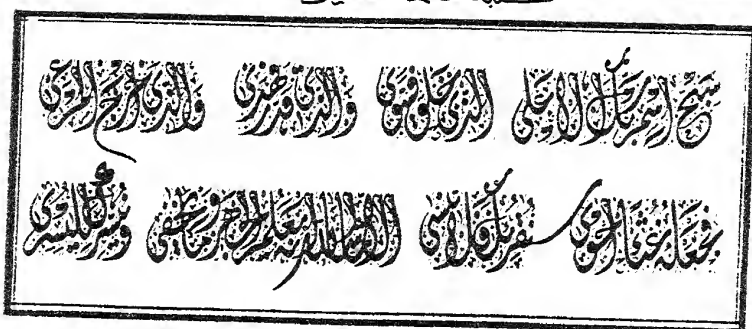 سبح اسم ربك الاعلى الذى خلق فسوى والذى قدر فهدى والذى اخرج المرعى
فجعله غثاء احوى سنقرئك فلا تنسى الا ما شاء الله انه يعلم الجهر وما يخفى ونيسرك لليسرى